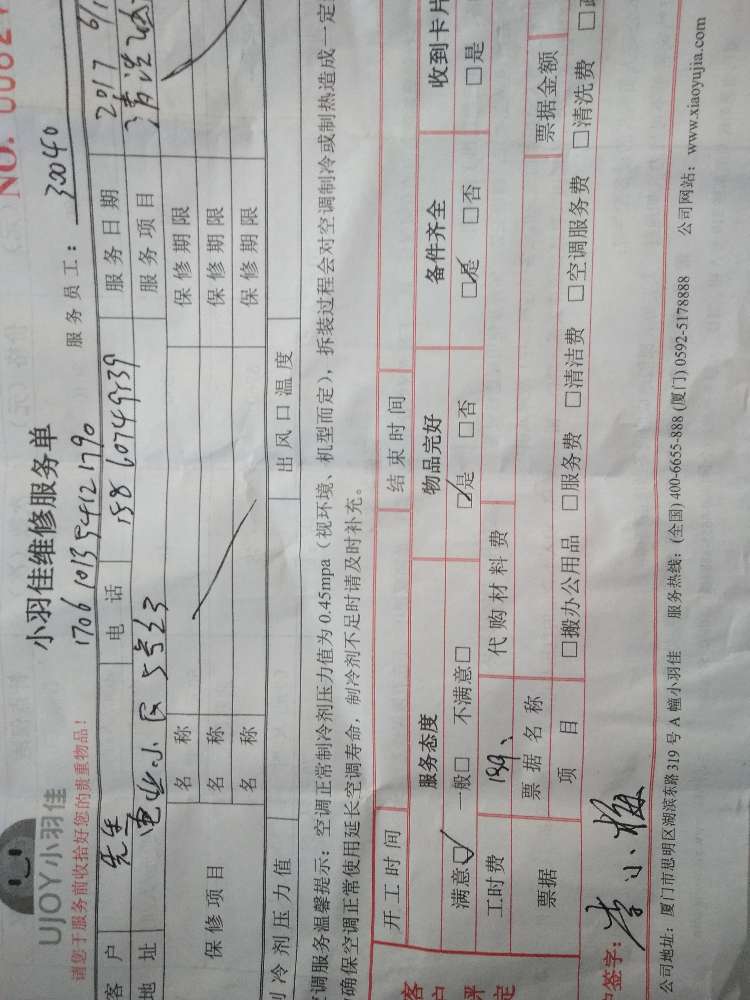 NO.
UJOY小羽佳
小羽佳维修服务单
1706101354121790
请您于服务前收拾好您的贵重物品!
服务员工: 30040
客户 先生 电话 15860749239 服务日期 2017
地址 电业小区5号 服务项目 清洗
保修项目
名称 保修期限
名称 保修期限
名称 保修期限
制冷剂压力值 出风口温度
调服务温馨提示:空调正常制冷剂压力值为 0.45mpa(视环境、机型而定),拆装过程会对空调制冷或制热造成一定
确保空调正常使用延长空调寿命,制冷剂不足时请及时补充。
开工时间 结束时间
服务态度 物品完好 备件齐全 收到卡片
满意☑ 一般□ 不满意□ ☑是 □否 ☑是 □否 □是
工时费 199、 代购材料费
票据 票据名称 票据金额
项目 □搬办公用品 □服务费 □清洁费 □空调服务费 □清洗费
签字: 李小梅
公司地址:厦门市思明区湖滨东路319号A幢小羽佳 服务热线:(全国) 400-6655-888 (厦门) 0592-5178888 公司网站:www.xiaoyujia.com